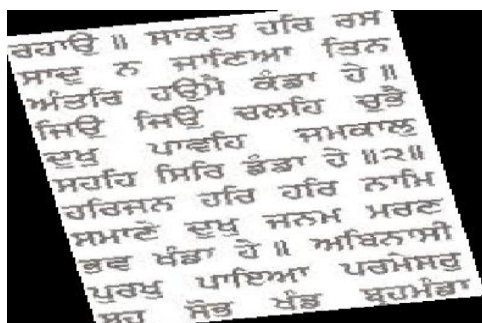 ਰਹਾਉ ॥ ਸਾਕਤ ਹਰਿ ਰਸ
ਸਾਦੁ ਨ ਜਾਣਿਆ ਤਿਨ
ਅੰਤਰਿ ਹਉਮੈ ਕੰਡਾ ਹੇ ॥
ਜਿਉ ਜਿਉ ਚਲਹਿ ਚੁਭੈ
ਦੁਖੁ ਪਾਵਹਿ ਜਮਕਾਲੁ
ਸਹਹਿ ਸਿਰਿ ਡੰਡਾ ਹੇ ॥੨॥
ਹਰਿਜਨ ਹਰਿ ਹਰਿ ਨਾਮਿ
ਸਮਾਣੇ ਦੁਖੁ ਜਨਮ ਮਰਣ
ਭਵ ਖੰਡਾ ਹੇ ॥ ਅਬਿਨਾਸੀ
ਪੁਰਖੁ ਪਾਇਆ ਪਰਮੇਸਰੁ
ਬਹੁ ਸੋਭ ਖੰਡ ਬ੍ਰਹਮੰਡਾ